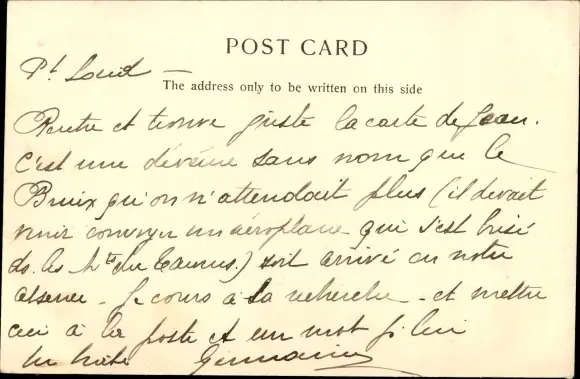 POST CARD
Pt Saïd —
The address only to be written on this side
Rentre et trouve juste la carte de Jean.
C'est une déveine sans nom que le
Bruix qu'on n'attendait plus (il devait
venir convoyer un aéroplane qui s'est brisé
ds. les Mts du Taurus.) soit arrivé en notre
absence – Je cours à sa recherche – et mettre
ceci à la poste et un mot p. lui
en hâte Germaine